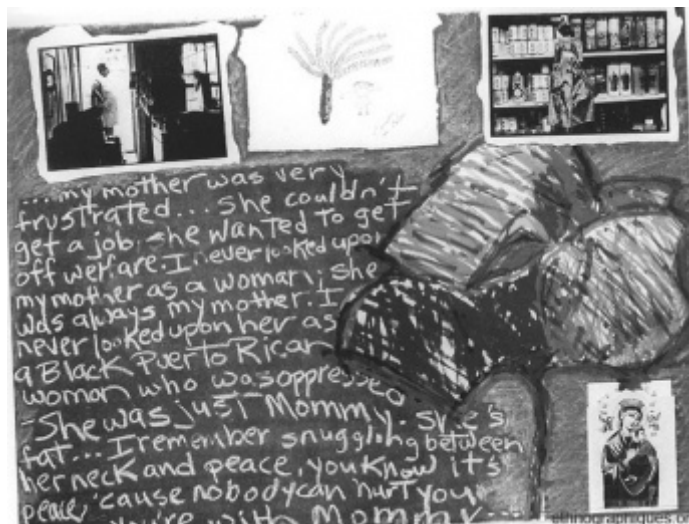 ...my mother was very
frustrated... she couldn't
get a job, she wanted to get
off welfare. I never looked upon
my mother as a woman; she
was always my mother. I
never looked upon her as
a Black Puerto Rican
woman who was oppressed
-She was just Mommy. She's
fat... I remember snuggling between
her neck and peace, you know it's
peace 'cause nobody can hurt you
you're with Mommy
ethnographiques.o